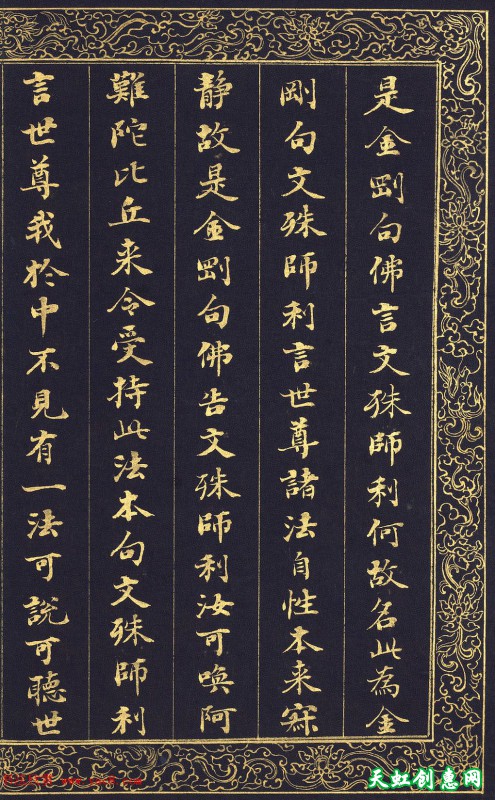 是金剛句佛言文殊師利何故名此為金
剛句文殊師利言世尊諸法自性本来寂
静故是金剛句佛告文殊師利汝可喚阿
難陀比丘来令受持此法本句文殊師利
言世尊我於中不見有一法可說可聽世
天虹创惠网